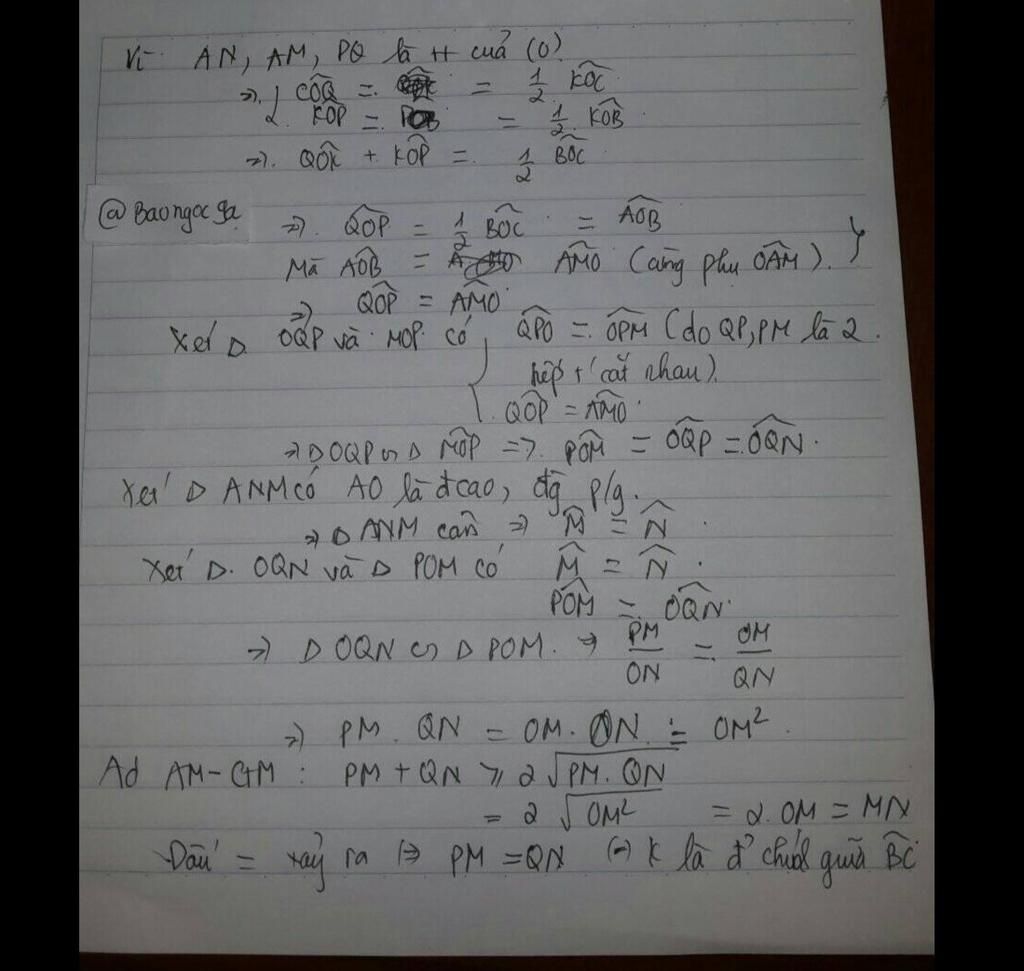 Vì AN, AM, PQ là tt cuả (O)
=> COQ̂ = = 1/2 KOĈ
KOP̂ = POB = 1/2 KOB̂
=> QOK̂ + KOP̂ = 1/2 BOĈ
@Baongoc9a
=> QOP̂ = 1/2 BOĈ = AOB̂
Mà AOB̂ = AMÔ (cùng phụ OAM̂).
=> QOP̂ = AMÔ
Xét Δ OQP và MOP có QPÔ = OPM̂ (do QP, PM là 2
tiếp t' cắt nhau).
QOP̂ = AMÔ
=> Δ OQP ∽ Δ MOP̂ => POM̂ = OQP̂ = OQN̂.
Xét Δ ANM có AO là đcao, đg p/g.
=> Δ ANM cân => M̂ = N̂
Xét Δ. OQN và Δ POM có M̂ = N̂.
POM̂ = OQN̂.
=> Δ OQN ∽ Δ POM. => PM/ON = OM/QN
=> PM. QN = OM. ON = OM²
Ad AM-GM: PM + QN ≥ 2√PM. QN
= 2√OM² = 2. OM = MN
Dấu = xảy ra <=> PM = QN (=) K là đ' chính giữa BĈ